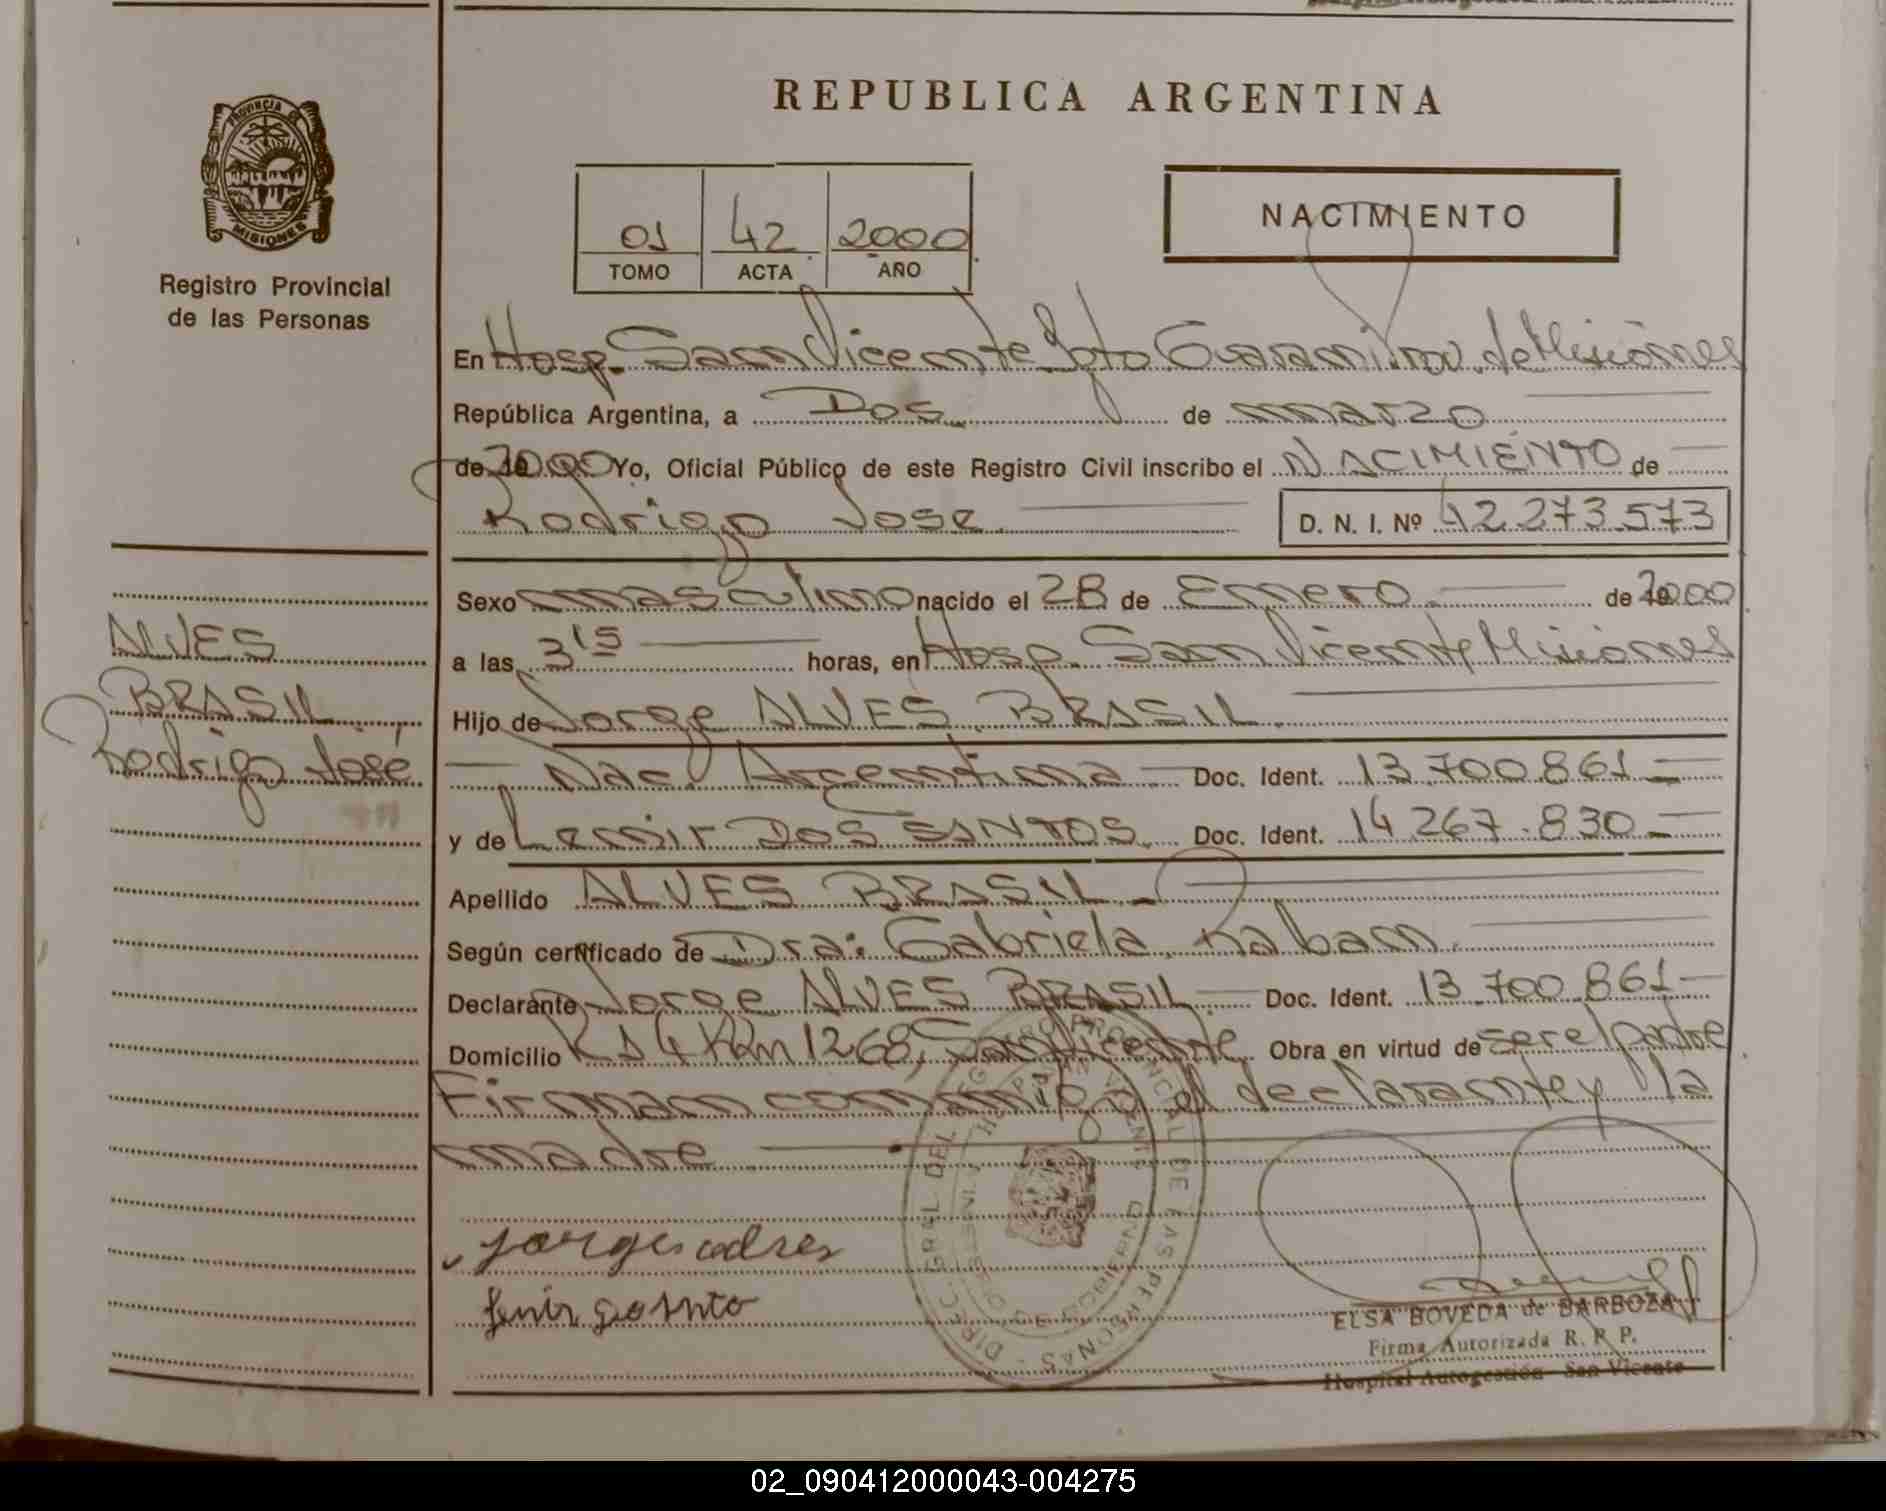 REPUBLICA ARGENTINA
PROVINCIA DE
MISIONES
Registro Provincial
de las Personas
01 42 2000
TOMO ACTA AÑO
NACIMIENTO
En Hosp. San Vicente Dpto Guarani Prov. de Misiones
República Argentina, a Dos de marzo
de 2000 Yo, Oficial Público de este Registro Civil inscribo el NACIMIENTO de
Rodrigo Jose D. N. I. Nº 42.273.573
Sexo masculino nacido el 28 de Enero de 2000
a las 3 15 horas, en Hosp. San Vicente Misiones
Hijo de Jorge ALVES BRASIL
Nac. Argentina Doc. Ident. 13.700.861
y de Lenir DOS SANTOS Doc. Ident. 14.267.830
Apellido ALVES BRASIL
Según certificado de Dra: Gabriela Kaban
Declarante Jorge ALVES BRASIL Doc. Ident. 13.700.861
Domicilio Km 1268, San Vicente Obra en virtud de ser el padre
Firman conmigo el declarante y la
madre
ALVES
BRASIL
Rodrigo José
DIREC. GRAL DEL REGISTRO PROVINCIAL DE LAS PERSONAS
ELSA BOVEDA de BARBOZA
Firma Autorizada R. P. P.
Hospital Autogestión San Vicente
02_090412000043-004275